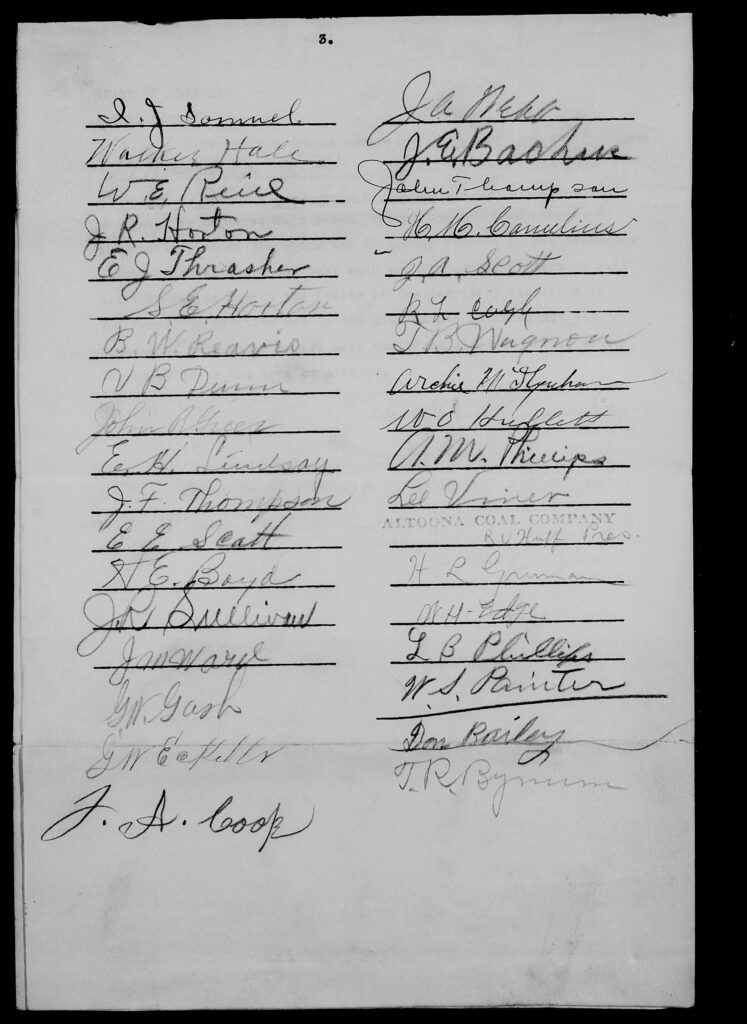 3.
I. J Somuel
Walker Hale
W. E.
J. R. Horton
E J Thrasher
S. E. Horton
B. W. Reavis
V B Dunn
John R
E. H. Lindsay
J. F. Thompson
E E. Scott
E. Boyd
J. R. Sullivan
J W Ward
G. W. Gash
G W
J. A. Cook
J A Webb
J. E.
John Thompson
H. H. Cornelius
J. A. Scott
R L
J. B. Wagnon
Archie M
W O Hullett
A. M. Phillips
Lee Viner
ALTOONA COAL COMPANY
R V Huff Pres.
H L
W H - Edge
L B Phillips
W. S. Painter
Don Bailey
T. R. Bynum